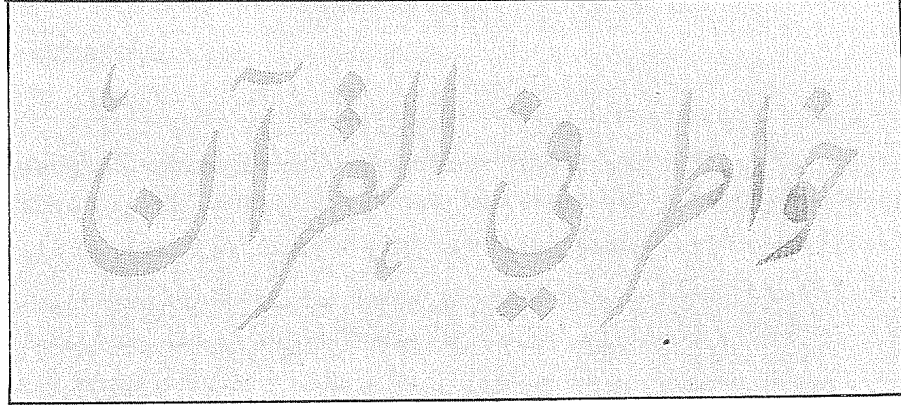 خواطر في القرآن